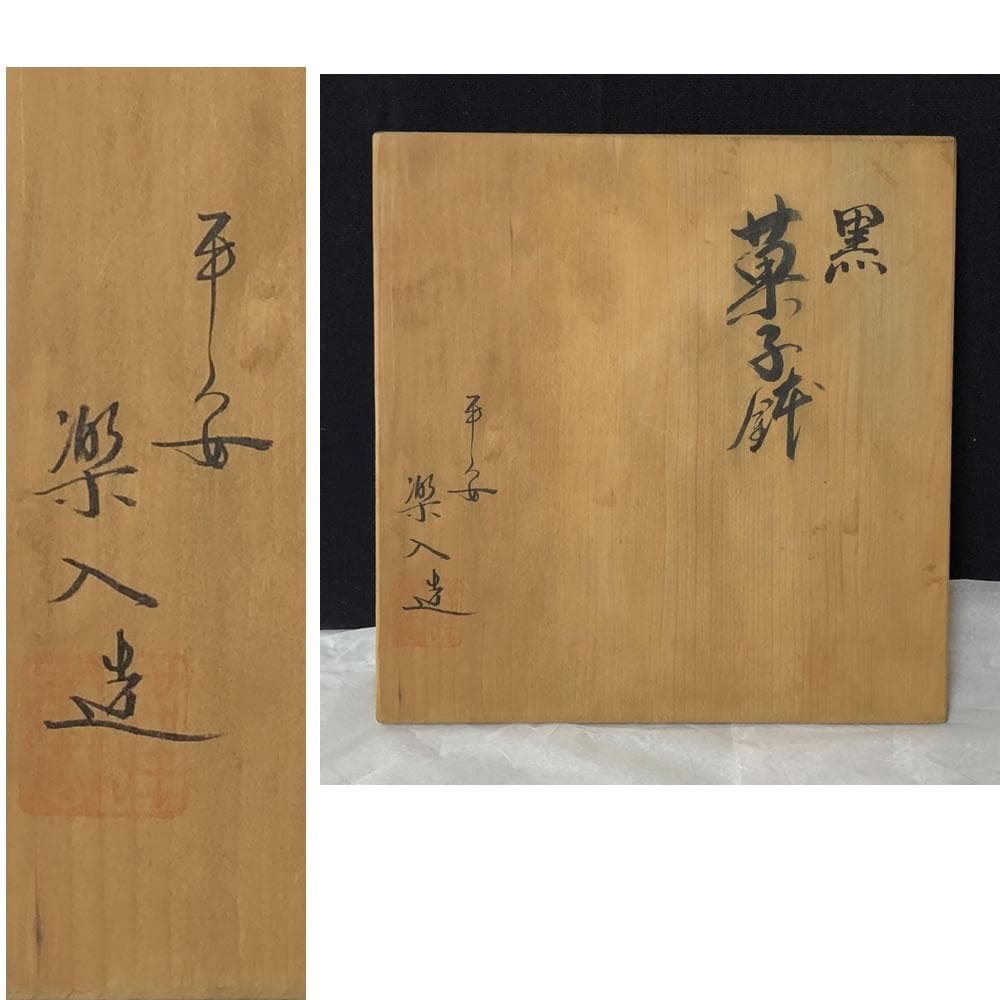 平安
楽入造
黒
菓子鉢
平安
楽入造